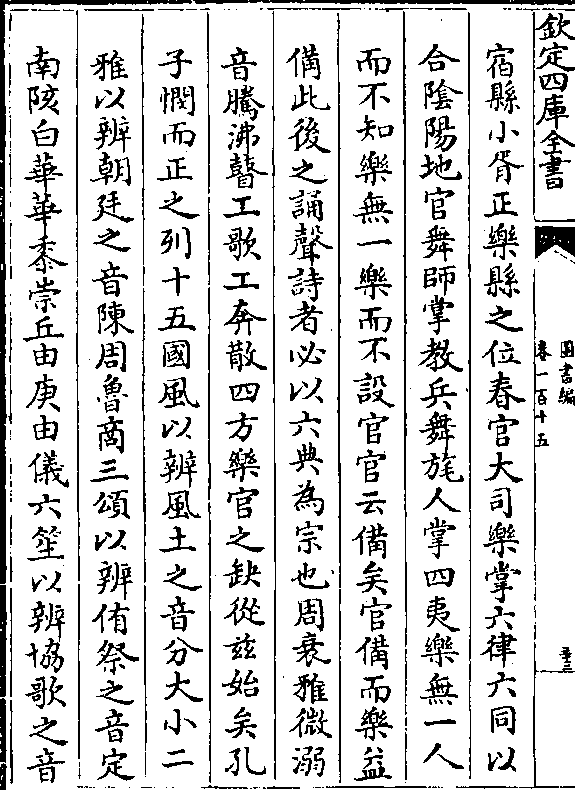 欽定四庫全書
圖書編
卷一百十五
宿縣小胥正樂縣之位春官大司樂掌六律六同以
合陰陽地官舞師掌教兵舞旄人掌四夷樂無一人
而不知樂無一樂而不設官官云備矣官備而樂益
備此後之誦聲詩者必以六典為宗也周衰雅微溺
音騰沸瞽工歌工奔散四方樂官之缺從茲始矣孔
子憫而正之列十五國風以辨風土之音分大小二
雅以辨朝廷之音陳周魯商三頌以辨侑祭之音定
南陔白華華黍崇丘由庚由儀六笙以辨協歌之音